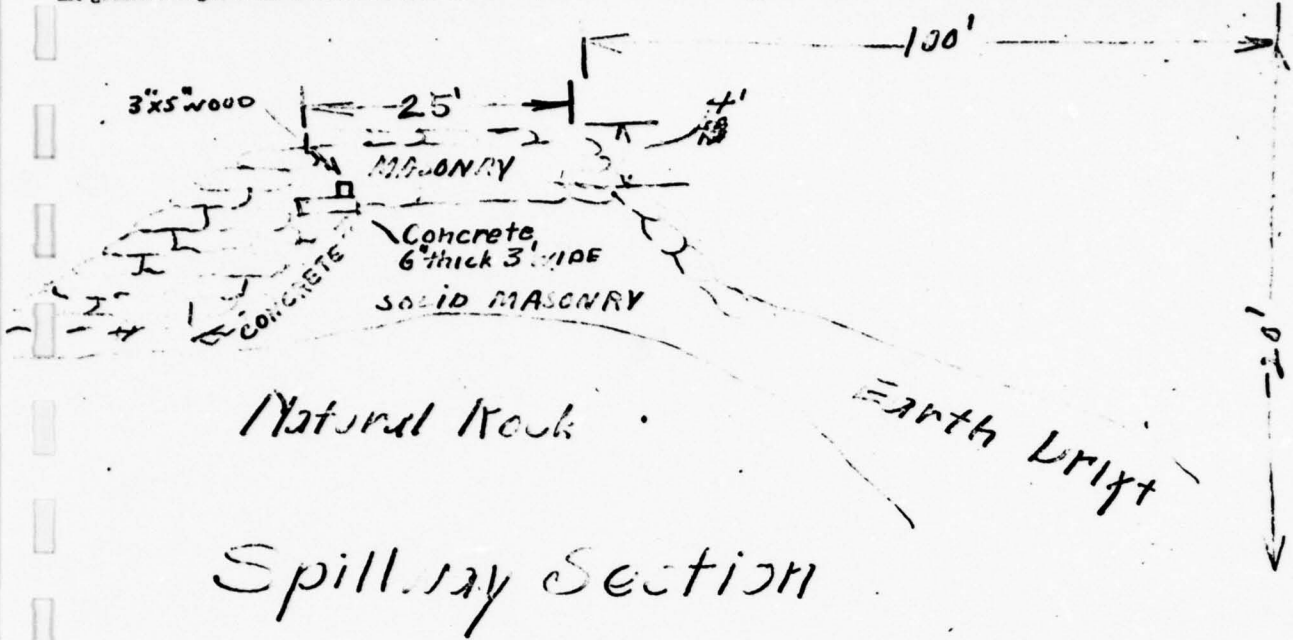 100'
3"x5" WOOD
25'
4'
MASONRY
Concrete
6" thick 3' WIDE
CONCRETE
SOLID MASONRY
20'
Natural Rock
Earth Drift
Spillway Section